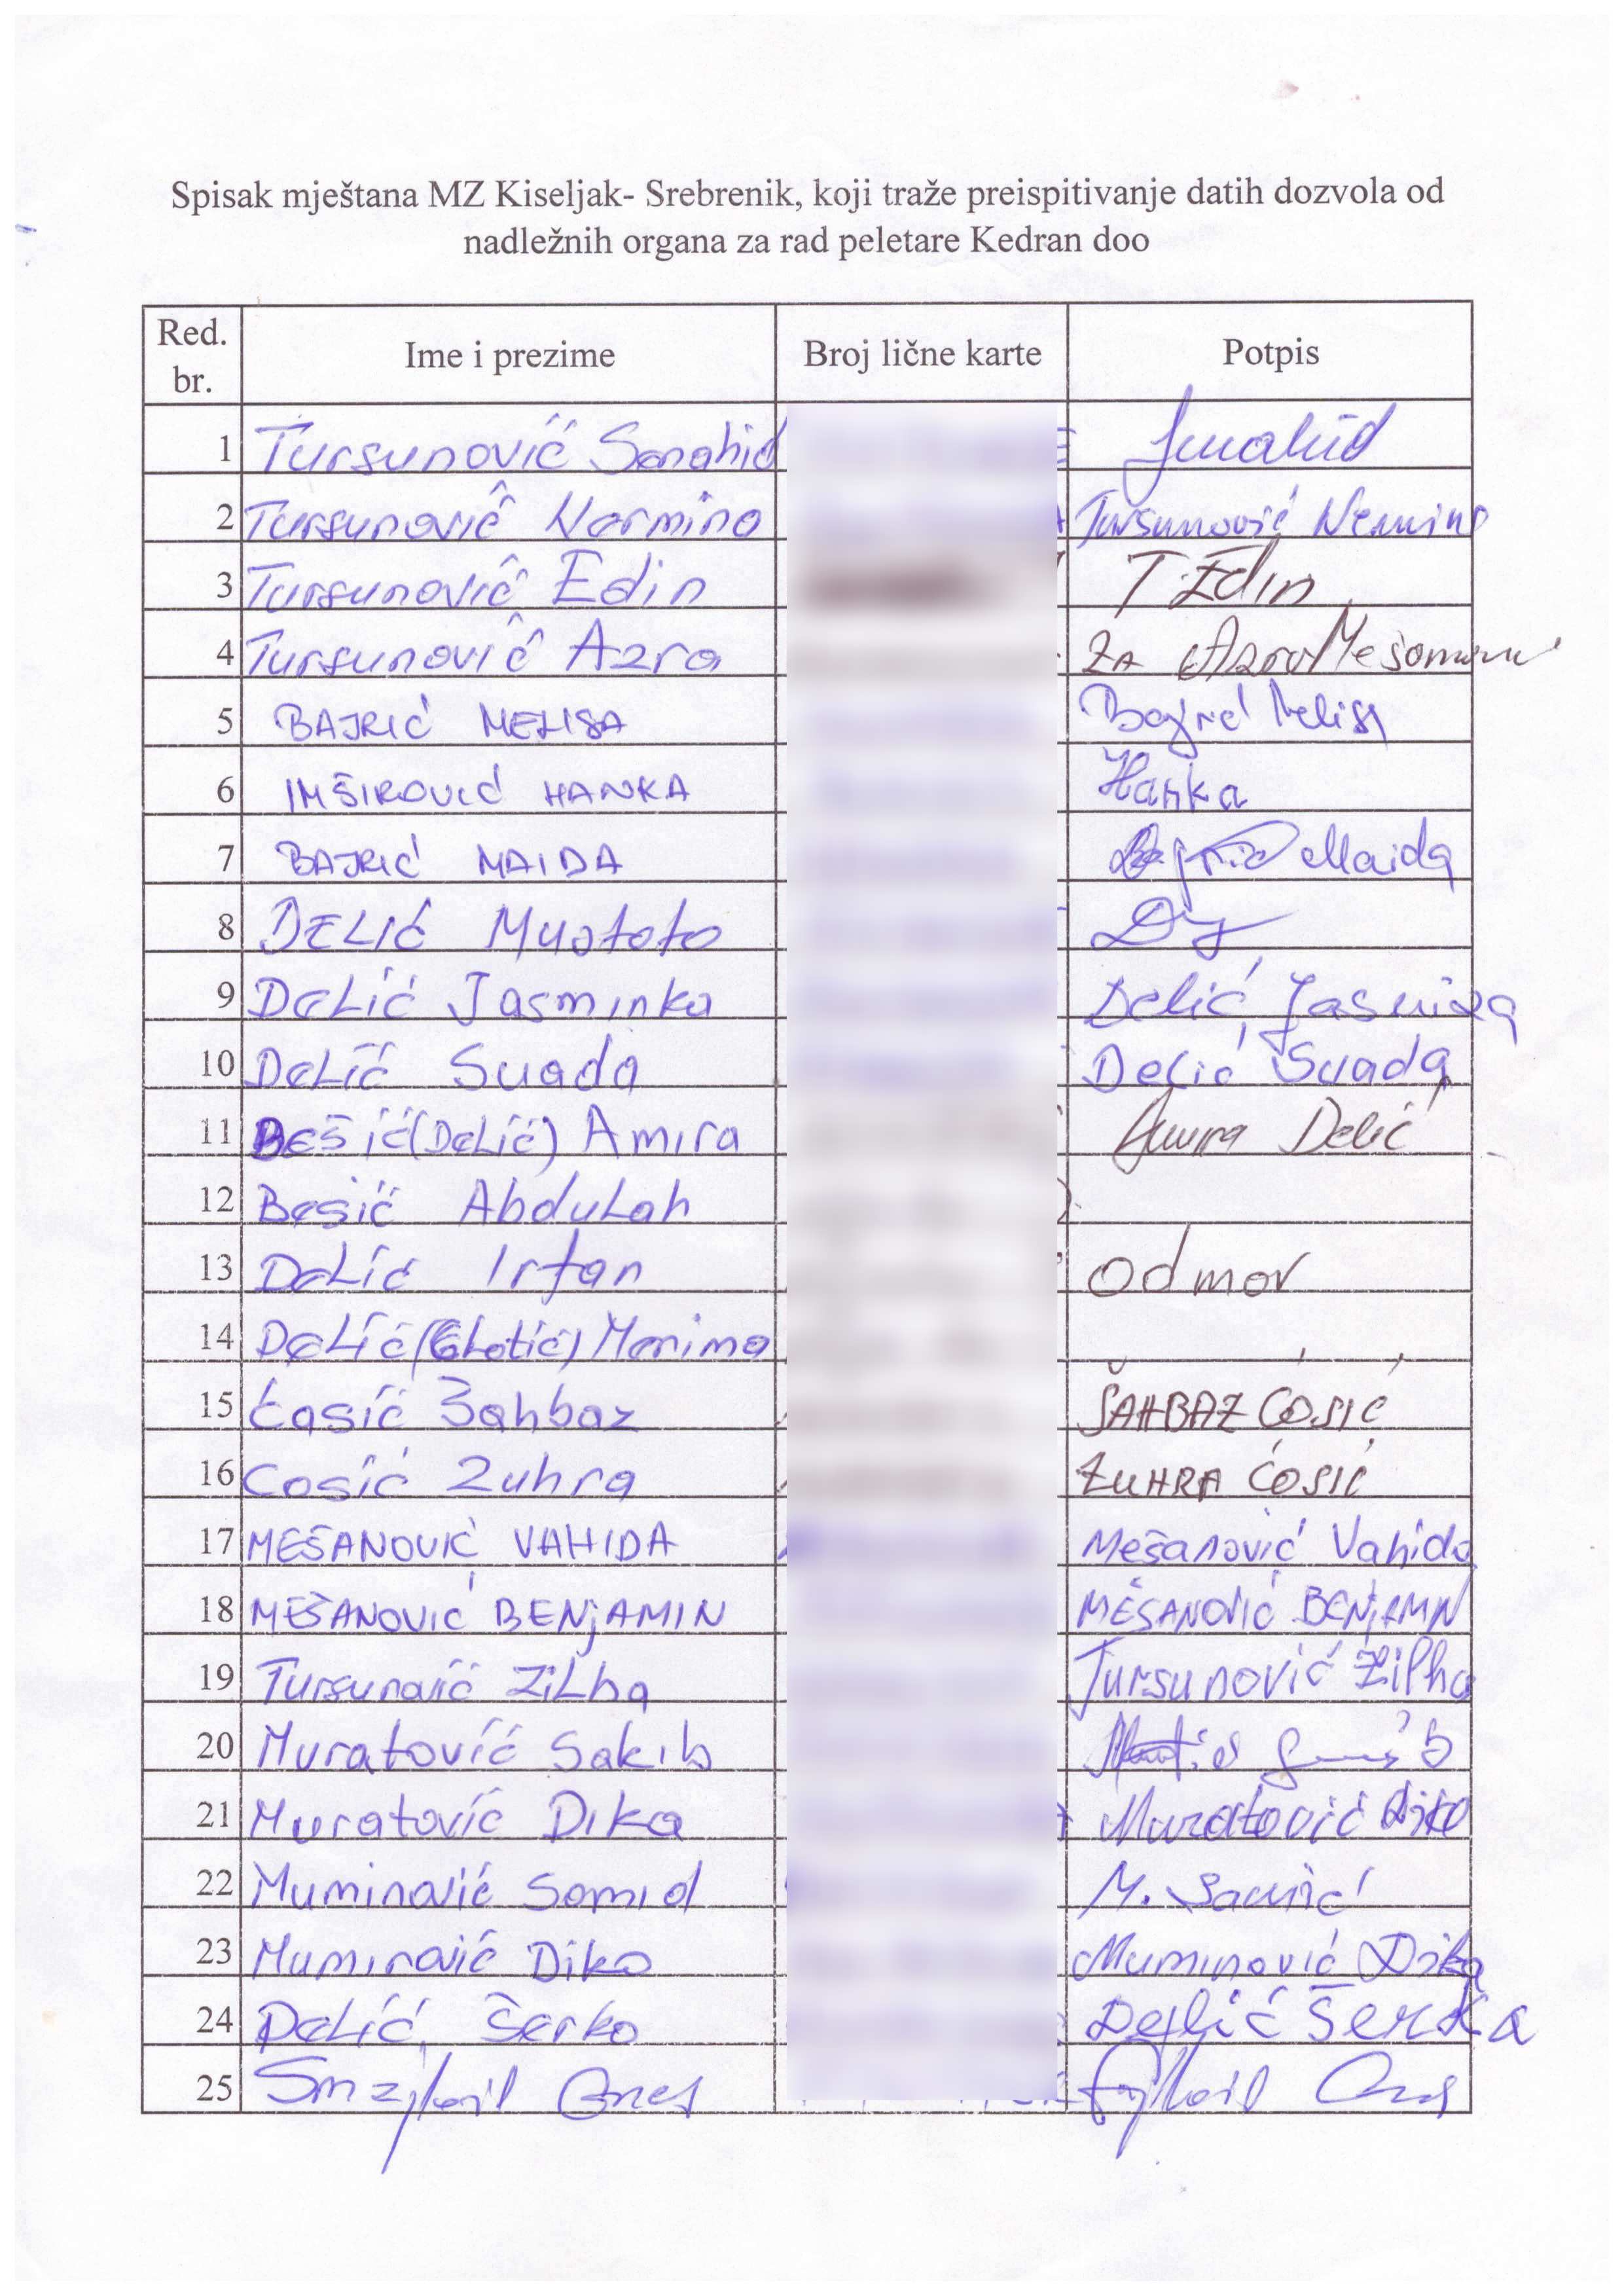 Spisak mještana MZ Kiseljak- Srebrenik, koji traže preispitivanje datih dozvola od
nadležnih organa za rad peletare Kedran doo
Red. br. Ime i prezime Broj lične karte Potpis
1 Tursunović Senahid Senahid
2 Tursunović Nermina Tursunović Nermina
3 Tursunović Edin T Edin
4 Tursunović Azra ZA Azra
5 BAJRIĆ MELISA Bajrić Melisa
6 IMŠIROVIĆ HANKA Hanka
7 BAJRIĆ MAIDA Bajrić Maida
8 DELIĆ Mustafa
9 DeLić Jasminka Delić Jasminka
10 DeLić Suada Delić Suada
11 BEŠić (DeLić) Amira Amira Delić
12 Besić AbduLah
13 DeLić Irfan Odmor
14 DeLić Merima
15 Ćosić Šahbaz ŠAHBAZ ĆOSIĆ
16 Cosić Zuhra ZUHRA ĆOSIĆ
17 MEŠANOVIĆ VAHIDA Mešanović Vahida
18 MEŠANOVIĆ BENjAMIN MEŠANOVIĆ BENjAMIN
19 Tursunović ZiLha Tursunović Zilha
20 Muratović Sakib
21 Muratović Dika Muratović Dika
22 Muminović Samid M. Samid
23 Muminović Dika Muminović Dika
24 DeLić Šerka Delić Šerka
25